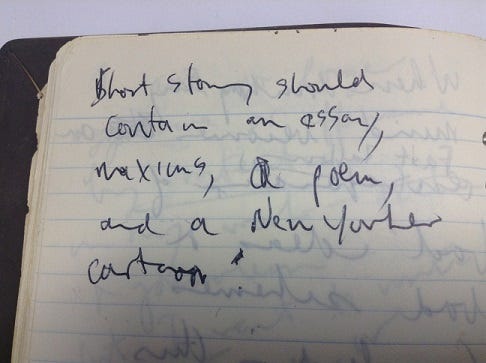 Short story should
contain an essay,
maxims, a poem,
and a New Yorker
cartoon.